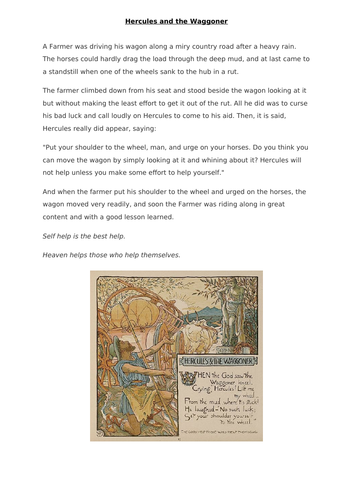 Hercules and the Waggoner
A Farmer was driving his wagon along a miry country road after a heavy rain.
The horses could hardly drag the load through the deep mud, and at last came to
a standstill when one of the wheels sank to the hub in a rut.
The farmer climbed down from his seat and stood beside the wagon looking at it
but without making the least effort to get it out of the rut. All he did was to curse
his bad luck and call loudly on Hercules to come to his aid. Then, it is said,
Hercules really did appear, saying:
"Put your shoulder to the wheel, man, and urge on your horses. Do you think you
can move the wagon by simply looking at it and whining about it? Hercules will
not help unless you make some effort to help yourself."
And when the farmer put his shoulder to the wheel and urged on the horses, the
wagon moved very readily, and soon the Farmer was riding along in great
content and with a good lesson learned.
Self help is the best help.
Heaven helps those who help themselves.
HERCULES & THE WAGGONER
WHEN the God saw the
Waggoner kneel,
Crying, "Hercules! Lift me
my wheel
From the mud, where 'tis stuck!"
He laughed—"No such luck;
Set your shoulder yourself
To the wheel."